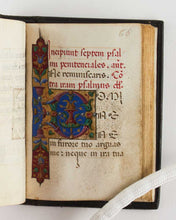 66
Incipiunt septem psal
mi penitenciales. añt.
Ne reminiscaris. Co
tra ira psalmus dd.
Domi
ne
ne
in furore tuo arguas
me: neque in ira tua